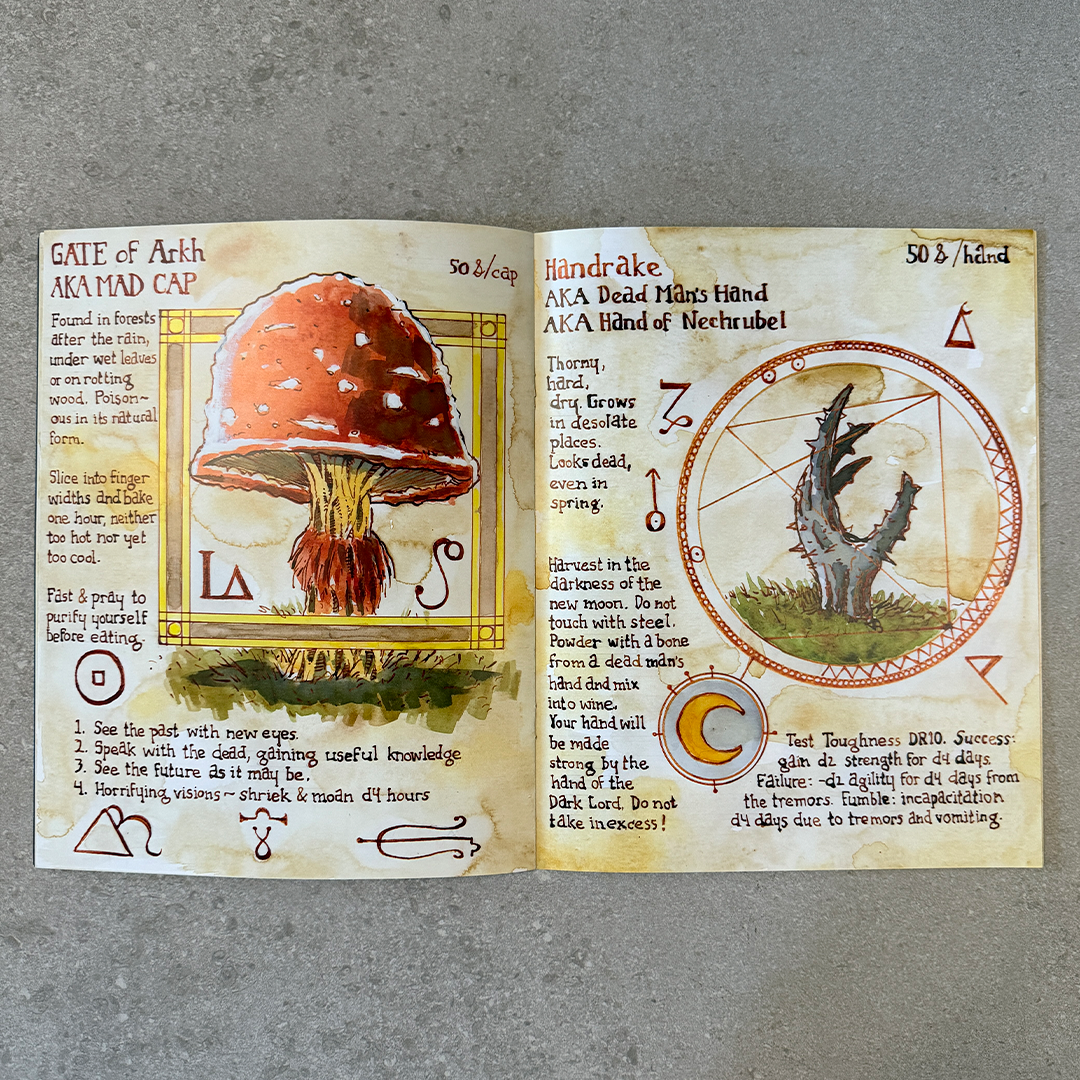 GATE of Arkh
AKA MAD CAP
50 s/cap
Found in forests
after the rain,
under wet leaves
or on rotting
wood. Poison~
ous in its natural
form.
Slice into finger
widths and bake
one hour, neither
too hot nor yet
too cool.
Fast & pray to
purify yourself
before eating.
1. See the past with new eyes.
2. Speak with the dead, gaining useful knowledge
3. See the future as it may be.
4. Horrifying visions~ shriek & moan d4 hours
Handrake
AKA Dead Man's Hand
AKA Hand of Nechrubel
50 s/hand
Thorny,
hard,
dry. Grows
in desolate
places.
Looks dead,
even in
spring.
Harvest in the
darkness of the
new moon. Do not
touch with steel.
Powder with a bone
from a dead man's
hand and mix
into wine.
Your hand will
be made
strong by the
hand of the
Dark Lord. Do not
take in excess!
Test Toughness DR10. Success:
gain d2 strength for d4 days.
Failure: -d2 agility for d4 days from
the tremors. Fumble: incapacitation
d4 days due to tremors and vomiting.